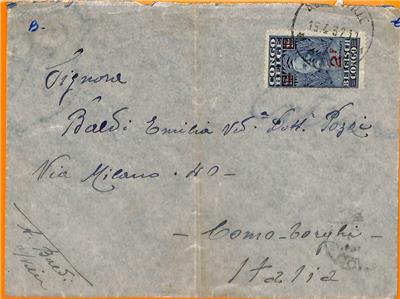 B.
15.4.37.11
CONGO BELGE
BELGISCH CONGO
2 F
Signora
Baldi Emilia Vdª Dott. Pozzi
Via Milano - 40 -
- Como - Borghi -
Italia
A. Baldi